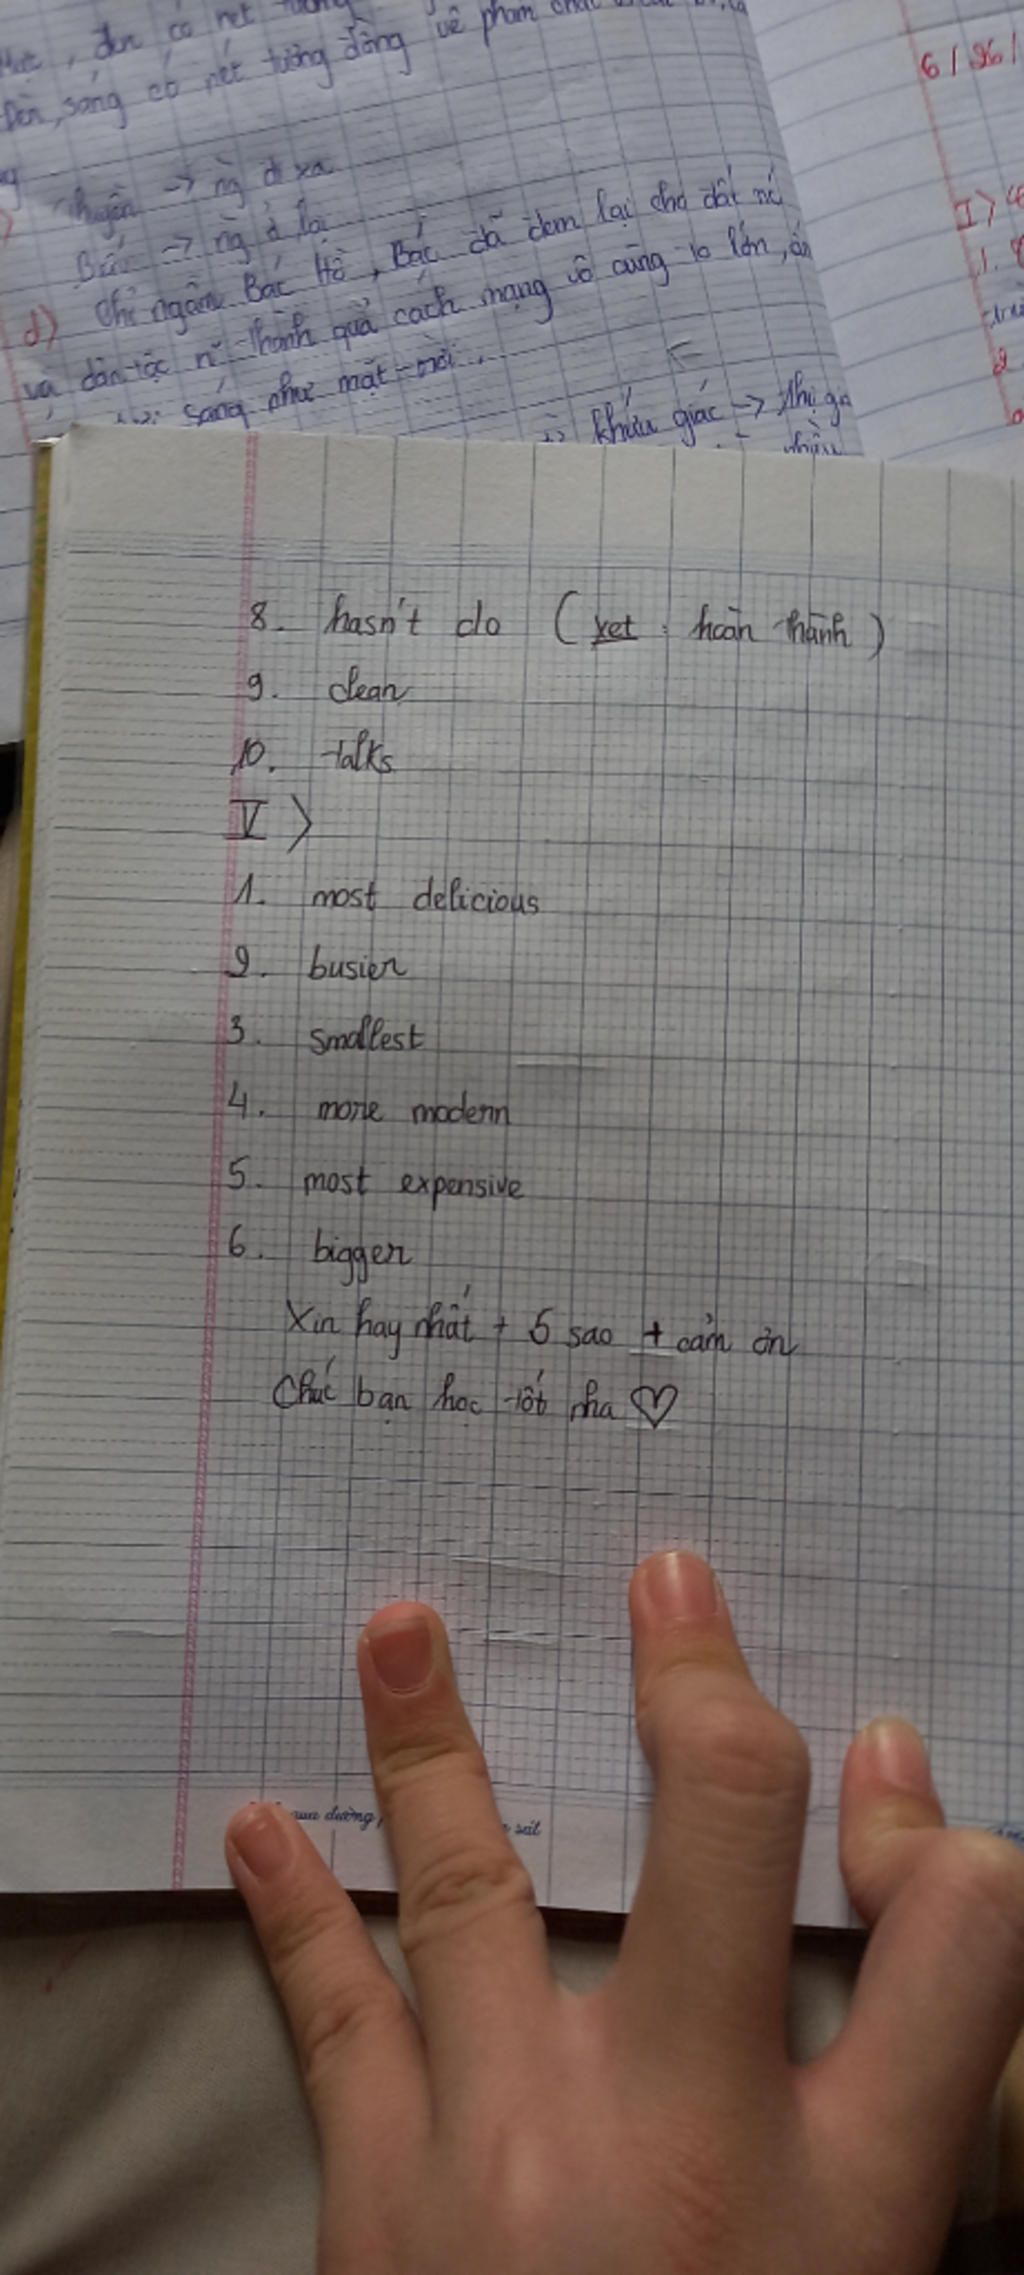 , đen có nét tương
đèn, sáng có nét tương đồng về phẩm chất
Thuyền -> ng đi xa
Bến -> ng ở lại
d) Chỉ ngầm Bác Hồ, Bác đã đem lại cho đất nc
và dân tộc n~ thành quả cách mạng vô cùng to lớn,
sáng như mặt trời.
khứu giác -> thị giác
6/26/
I>
1.
2
8. hasn't do (yet : hoàn thành)
9. clean
10. talks
V>
1. most delicious
2. busier
3. smallest
4. more modern
5. most expensive
6. bigger
Xin hay nhất + 5 sao + cảm ơn
Chúc bạn học tốt nha ♡